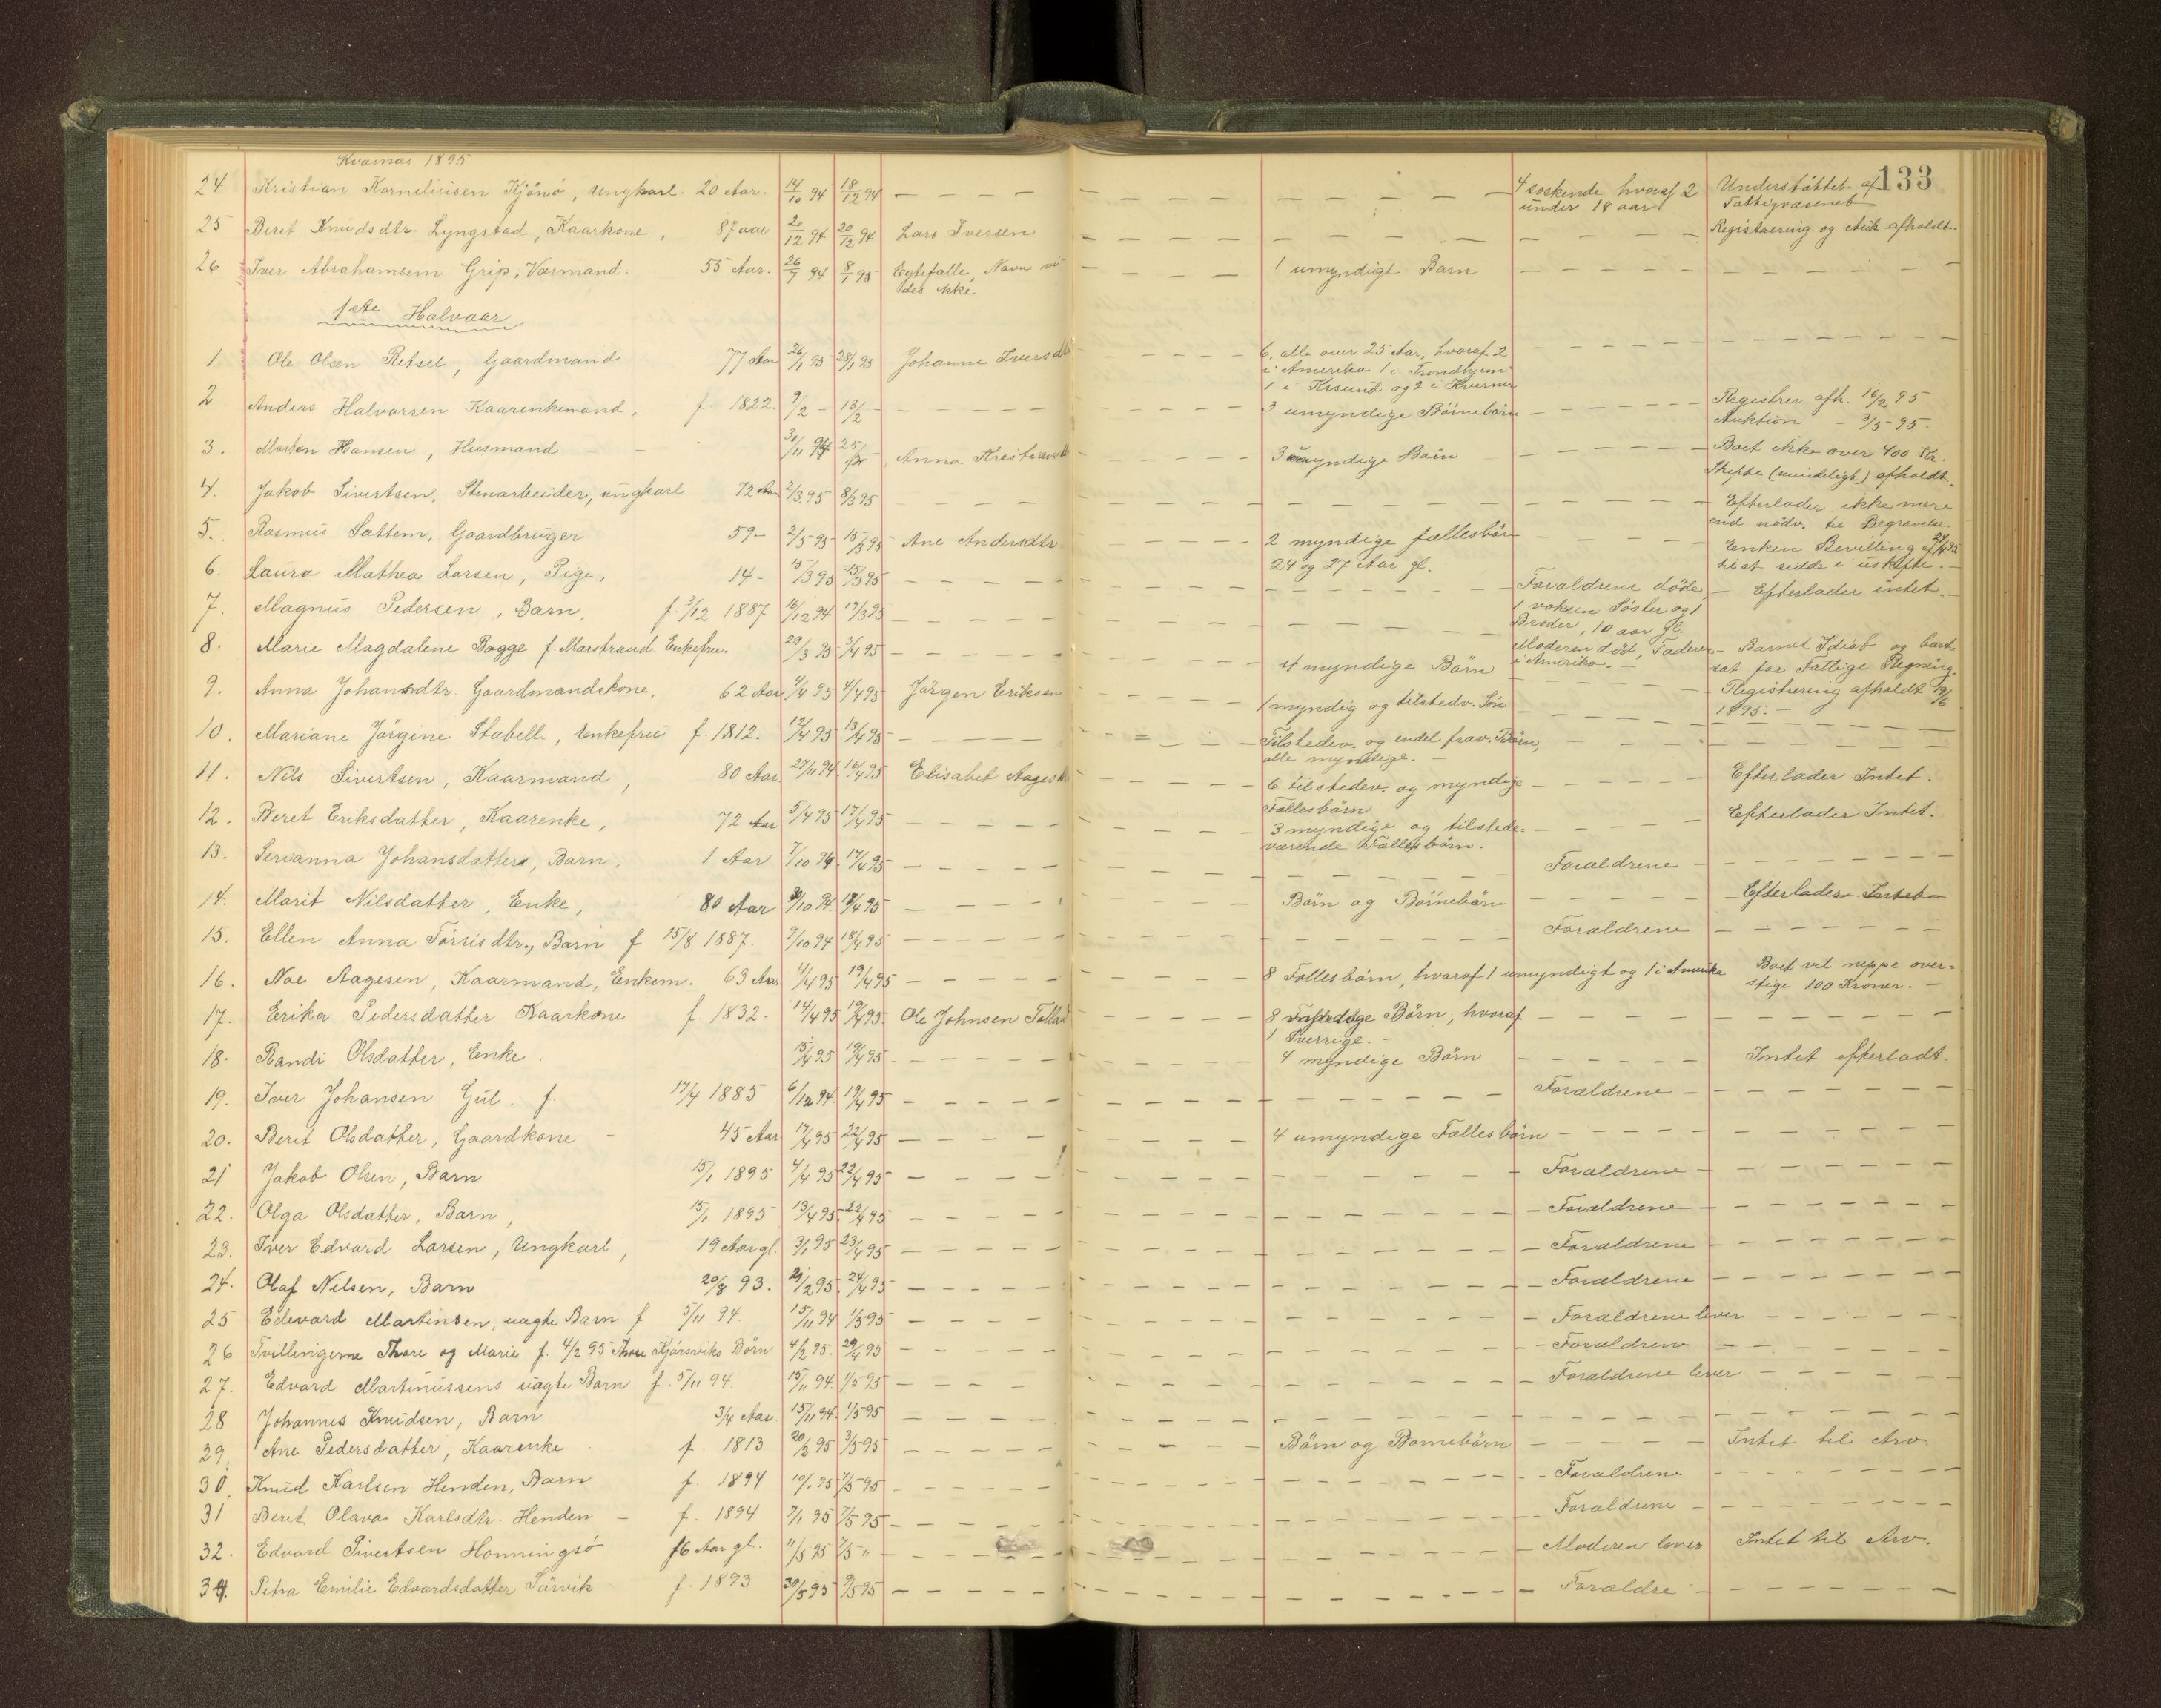 Kvarnæs 1895
133
24 Kristian Korneliusen Kjönö, Ungkarl. 20 Aar. 14/10 94 18/12 94 4 söskende hvoraf 2 Understöttet af
under 18 aar Fattigvæsenet
25 Beret Knudsdtr. Lyngstad, Kaarkone, 87 aar 20/12 94 20/12 94 Lars Iversen Registrering og Auk afholdt.
26 Iver Abrahamsen Grip, Værmand. 55 Aar. 26/7 94 8/1 95 Egtefælle, Navn vi- 1 umyndigt Barn
des ikke
1ste Halvaar
1. Ole Olsen Retsel, Gaardmand 77 Aar 26/1 95 28/1 95 Johanne Iversdtr 6, alle over 25 Aar, hvoraf 2
i Amerika 1 i Trondhjem
1 i Krsund og 2 i Kvernes
2 Anders Halvorsen Kaarenkemand, f 1822. 9/2 - 13/2 - 3 umyndige Börnebörn Registrer. afh. 16/2 95
Auktion - 3/5 95.
3. Morten Hansen, Husmand 30/11 94 Anna Kristens 3 umyndige Barn Boet ikke over 400 Kr.
Skifte (mindeligt) afholdt.
4. Jakob Sivertsen, Stenarbeider, ungkarl 72 Aar 2/3 95 8/3 95 Efterlader ikke mere
end nödv. til Begravelse.
5. Rasmus Sættem, Gaardbruger 59 - 2/5 95 15/3 95 Ane Andersdtr 2 myndige fællesbörn Enken Bevilling af
24 og 27 Aar gl. til at sidde i uskifte.
6. Laura Mathea Larsen, Pige, 14 - 15/3 95 15/3 95 Forældrene döde, Efterlader intet.
1 voksen Söster og 1
Broder, 10 aar gl.
7. Magnus Pedersen, Barn, f. 3/12 1887 16/12 94 19/3 95 Moderen död, Faderen Barnet Idiot og bort-
i Amerika. sat for Fattige Regning.
8. Marie Magdalene Bogge f. Marstrand Enkefru. 29/3 95 3/4 95 4 myndige Börn Registrering afholdt 19/6
1895.
9. Anna Johansdtr. Gaardmandskone, 62 Aar 4/4 95 4/4 95 Jörgen Eriksen 1 myndig og tilstedv. Sön
10. Mariane Jörgine Stabell, Enkefru f. 1812. 12/4 95 13/4 95 Tilstedev. og endel frav. Börn,
alle myndige.
11. Nils Sivertsen, Kaarmand, 80 Aar 27/11 94 16/4 95 Elisabet Aages 6 tilstedev. og myndige Efterlader Intet.
Fællesbörn
12. Beret Eriksdatter, Kaarenke, 72 Aar 5/4 95 17/4 95 3 myndige og tilstede- Efterlader Intet.
værende Fællesbörn.
13. Serianna Johansdatter, Barn. 1 Aar 7/10 94 17/4 95 Forældrene
14. Marit Nilsdatter, Enke, 80 Aar 94 95 Börn og Börnebörn Efterlader Intet
15. Ellen Anna Törrisdtr., Barn f 15/8 1887. 9/10 94 18/4 95 Forældrene
16. Noe Aagesen, Kaarmand, Enkem. 63 Aar 4/4 95 19/4 95 8 Fællesbörn, hvoraf 1 umyndigt og 1 i Amerika Boet vil neppe over-
stige 100 Kroner.
17. Erika Pedersdatter Kaarkone f. 1832. 14/4 95 19/4 95. Ole Johnsen 8 myndige Börn, hvoraf
1 Sverrige.
18. Randi Olsdatter, Enke. 15/4 95 19/4 95 4 myndige Börn Intet efterladt.
19. Iver Johansen Gul. f. 17/4 1885 6/12 94 19/4 95 Forældrene
20. Beret Olsdatter, Gaardkone 45 Aar 17/4 95 22/4 95 4 umyndige Fællesbörn
21 Jakob Olsen, Barn 15/1 1895 4/4 95 22/4 95 Forældrene
22. Olga Olsdatter, Barn, 15/1 1895 13/4 95. 22/4 95 Forældrene
23. Iver Edvard Larsen, Ungkarl, 19 Aar gl. 3/1 95 23/4 95 Forældrene
24. Olaf Nilsen, Barn 20/8 93. 21/2 95. 24/4 95 Forældrene
25 Edevard Martinsen, uægte Barn f 5/11 94. 15/11 94 1/5 95 Forældrene lever
26 Tvillingerne Thore og Marie f. 4/2 95 Thore Kjörsviks Börn 4/2 95. 29/4 95 Forældrene
27. Edvard Martinussens uægte Barn f. 5/11 94. 15/11 94. 1/5 95 Forældrene lever
28 Johannes Knudsen, Barn 3/4 Aar. 15/11 94. 1/5 95
29. Ane Pedersdatter, Kaarenke f. 1813 20/2 95 3/5 95 Börn og Börnebörn Intet til Arv.
30. Knud Karlsen Henden, Barn f 1894 10/1 95 7/5 95 Forældrene
31 Beret Olava Karlsdtr. Henden f. 1894 7/1 95 7/5 95 Forældrene
32. Edvard Sivertsen Honningsö 16 Aar gl. 11/5 95 7/5 " Moderen lever Intet til Arv.
34. Petra Emilie Edvardsdatter Sörvik f. 1893 30/5 95 9/5 95 Forældre